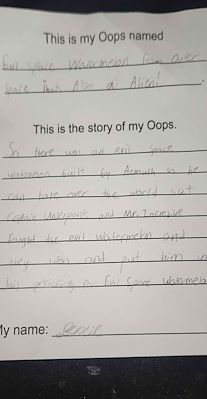 This is my Oops named
Evil Space Watermelon From outer
Space Thats Also a Alien!
This is the story of my Oops.
So there was an evil space
watermelon built by Azmuth so he
can take over the world but
Captin Underpants and Mr. Incredible
fought the evil watermelon and
they won and put him in
jail
Evil Space Watermelon
My name: